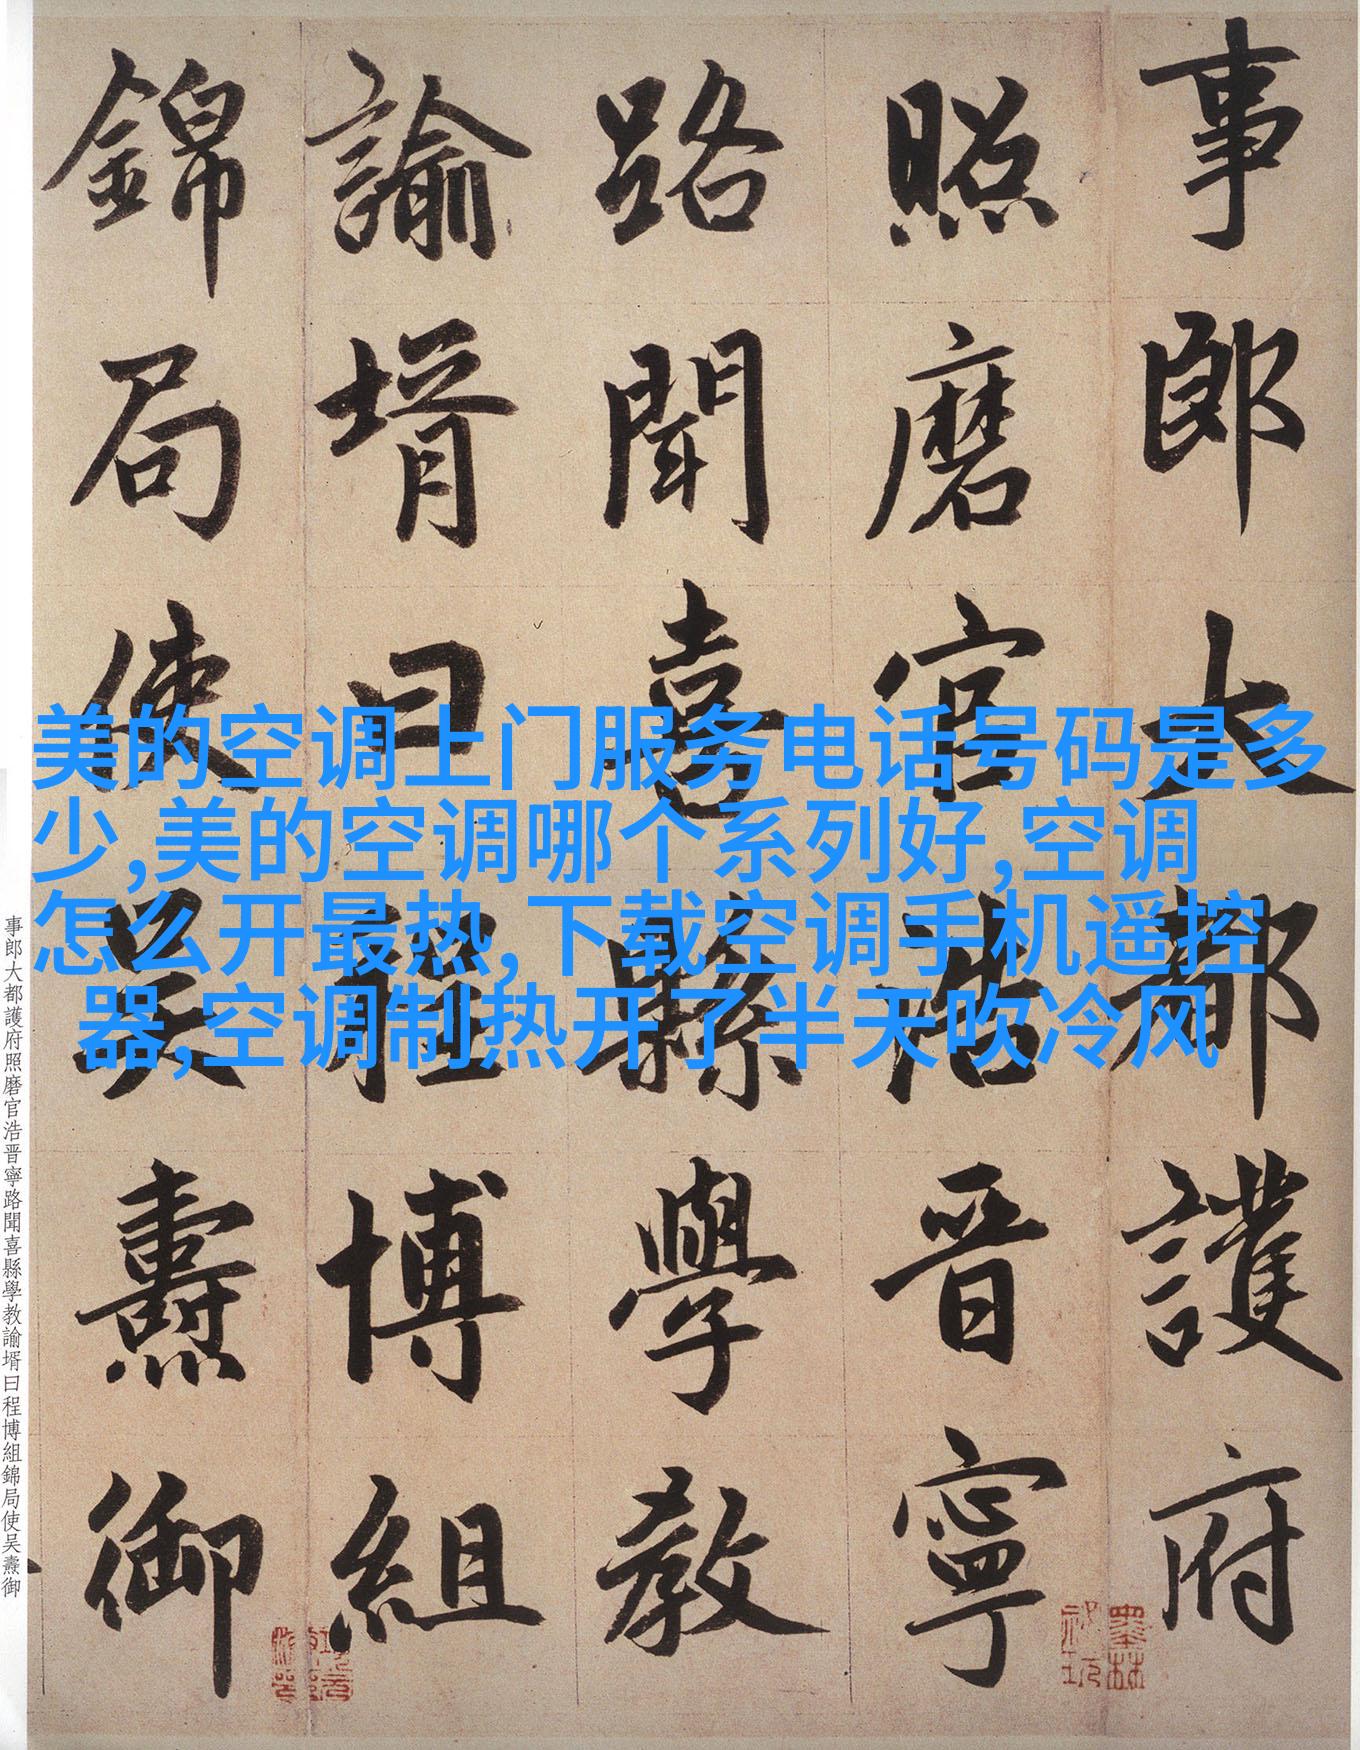 事郎大都護府
照磨官浩晋寧
路聞喜縣學教
諭壻曰程博組
錦局使吴燾御
美的空调上门服务电话号码是多
少,美的空调哪个系列好,空调
怎么开最热,下载空调手机遥控
器,空调制热开了半天吹冷风
事郎大都護府照磨官浩晋寧路聞喜縣學教諭壻曰程博組錦局使吴燾御